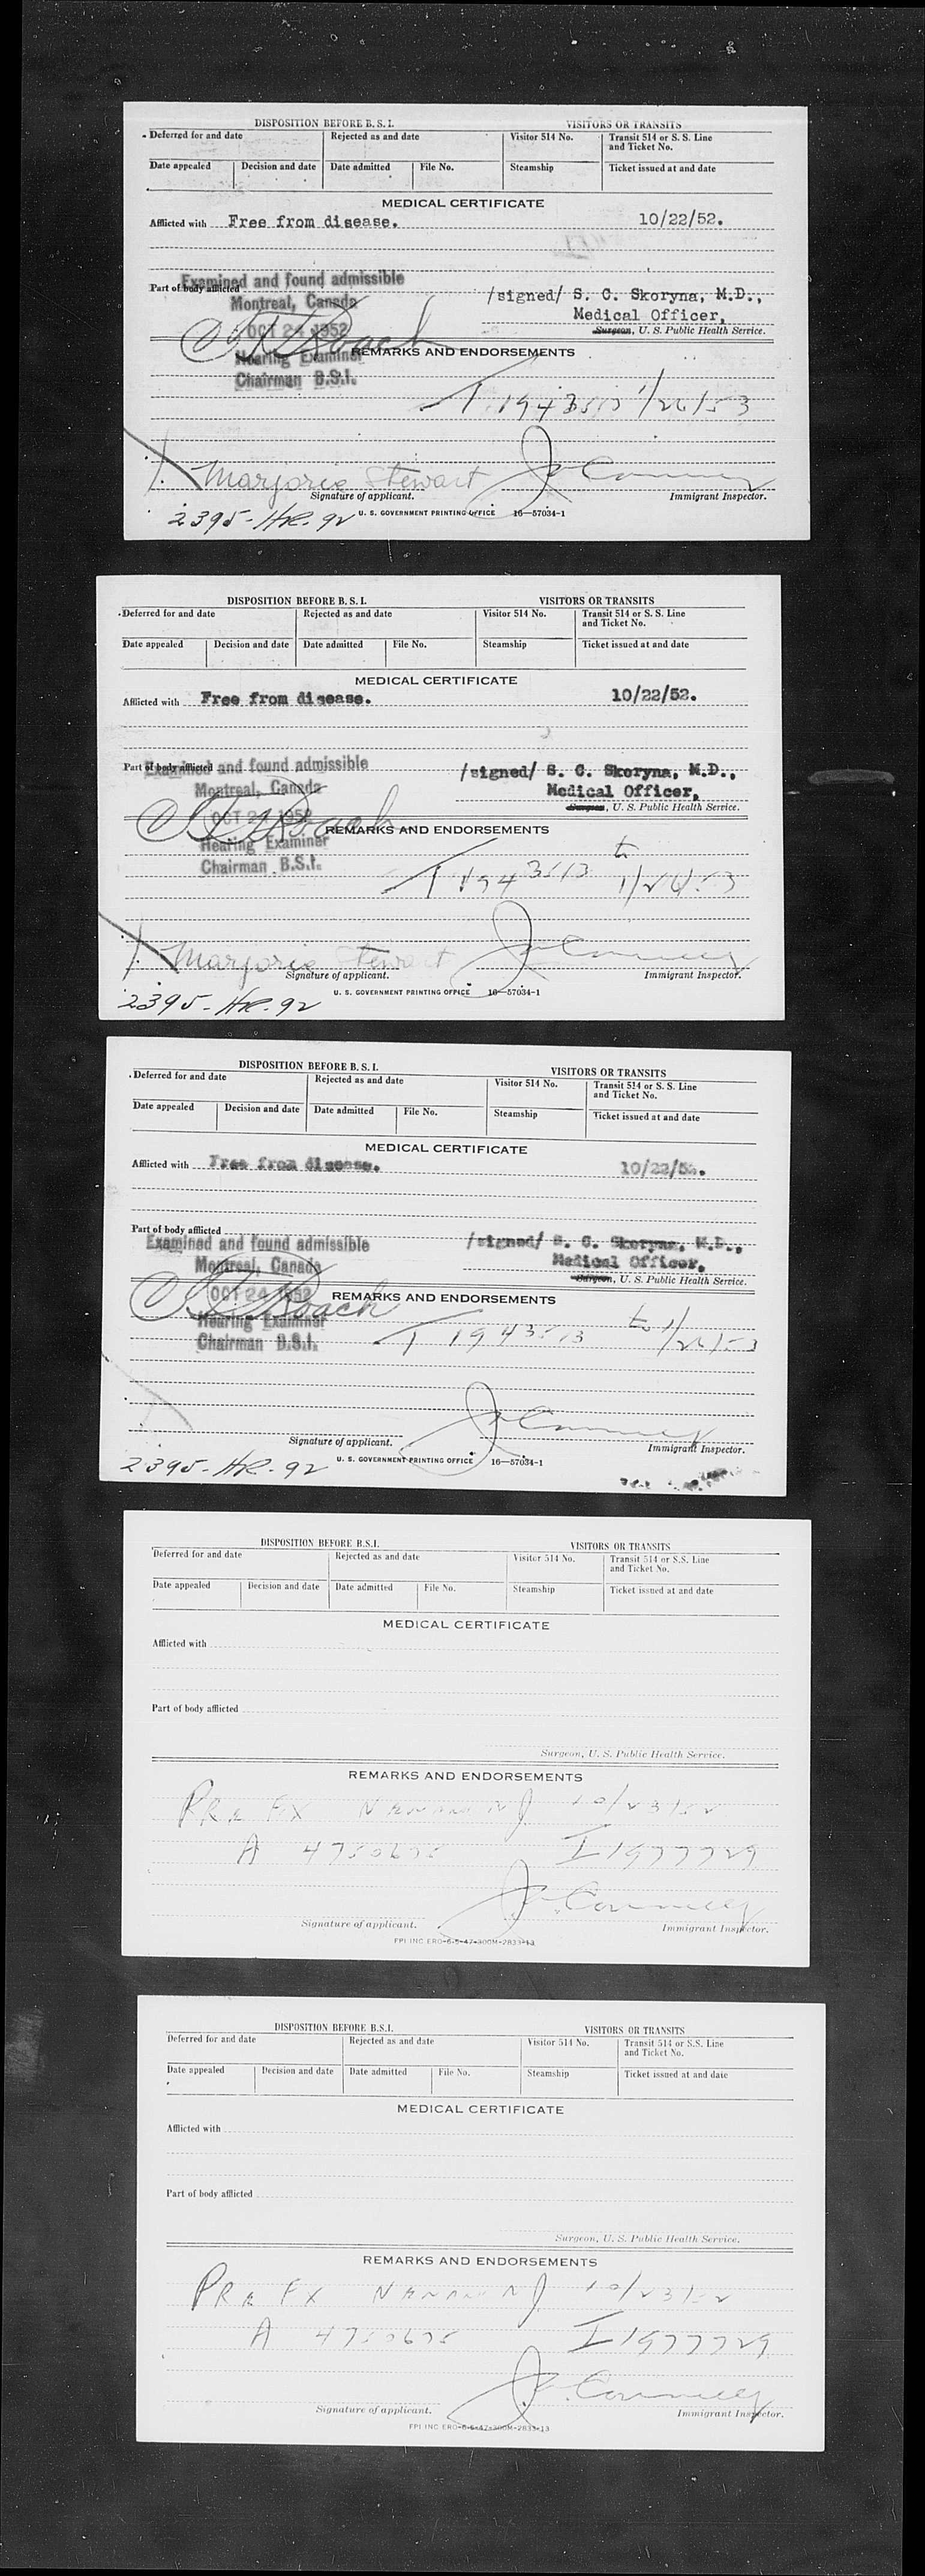 DISPOSITION BEFORE B. S. I. VISITORS OR TRANSITS
Deferred for and date Rejected as and date Visitor 514 No. Transit 514 or S. S. Line and Ticket No.
Date appealed Decision and date Date admitted File No. Steamship Ticket issued at and date
MEDICAL CERTIFICATE
Afflicted with Free from disease. 10/22/52.
Examined and found admissible
Part of body afflicted
Montreal, Canada
/signed/ S. C. Skoryna, M.D.,
Medical Officer,
OCT 24 1952
Surgeon, U. S. Public Health Service.
Roach
REMARKS AND ENDORSEMENTS
Hearing Examiner
Chairman B.S.I.
T 1943513 1/26/53
Marjorie Stewart
Signature of applicant. Immigrant Inspector.
2395-HR.92 U. S. GOVERNMENT PRINTING OFFICE 16—57034-1
DISPOSITION BEFORE B. S. I. VISITORS OR TRANSITS
Deferred for and date Rejected as and date Visitor 514 No. Transit 514 or S. S. Line and Ticket No.
Date appealed Decision and date Date admitted File No. Steamship Ticket issued at and date
MEDICAL CERTIFICATE
Afflicted with Free from disease. 10/22/52.
Part of body afflicted
Examined and found admissible
Montreal, Canada
/signed/ S. C. Skoryna, M.D.,
Medical Officer,
OCT 24 1952
Surgeon, U. S. Public Health Service.
Roach
REMARKS AND ENDORSEMENTS
Hearing Examiner
Chairman B.S.I.
T 1943513 to 1/26/53
Marjorie Stewart
Signature of applicant. Immigrant Inspector.
2395-HR.92 U. S. GOVERNMENT PRINTING OFFICE 16—57034-1
DISPOSITION BEFORE B. S. I. VISITORS OR TRANSITS
Deferred for and date Rejected as and date Visitor 514 No. Transit 514 or S. S. Line and Ticket No.
Date appealed Decision and date Date admitted File No. Steamship Ticket issued at and date
MEDICAL CERTIFICATE
Afflicted with Free from disease. 10/22/52.
Part of body afflicted
Examined and found admissible
Montreal, Canada
/signed/ S. C. Skoryna, M.D.,
Medical Officer,
OCT 24 1952
Surgeon, U. S. Public Health Service.
Roach
REMARKS AND ENDORSEMENTS
Hearing Examiner
Chairman B.S.I.
T 1943513 to 1/26/53
Signature of applicant. Immigrant Inspector.
2395-HR.92 U. S. GOVERNMENT PRINTING OFFICE 16—57034-1
DISPOSITION BEFORE B.S.I. VISITORS OR TRANSITS
Deferred for and date Rejected as and date Visitor 514 No. Transit 514 or S.S. Line and Ticket No.
Date appealed Decision and date Date admitted File No. Steamship Ticket issued at and date
MEDICAL CERTIFICATE
Afflicted with
Part of body afflicted
Surgeon, U. S. Public Health Service.
REMARKS AND ENDORSEMENTS
PRE EX NEWARK NJ 10/23/52
A 4750675 I 1977729
Signature of applicant. Immigrant Inspector.
FPI INC ERO-6-5-47-300M-2833-13
DISPOSITION BEFORE B.S.I. VISITORS OR TRANSITS
Deferred for and date Rejected as and date Visitor 514 No. Transit 514 or S.S. Line and Ticket No.
Date appealed Decision and date Date admitted File No. Steamship Ticket issued at and date
MEDICAL CERTIFICATE
Afflicted with
Part of body afflicted
Surgeon, U. S. Public Health Service.
REMARKS AND ENDORSEMENTS
PRE EX NEWARK NJ 10/23/52
A 4750675 I 1977729
Signature of applicant. Immigrant Inspector.
FPI INC ERO-6-5-47-300M-2833-13